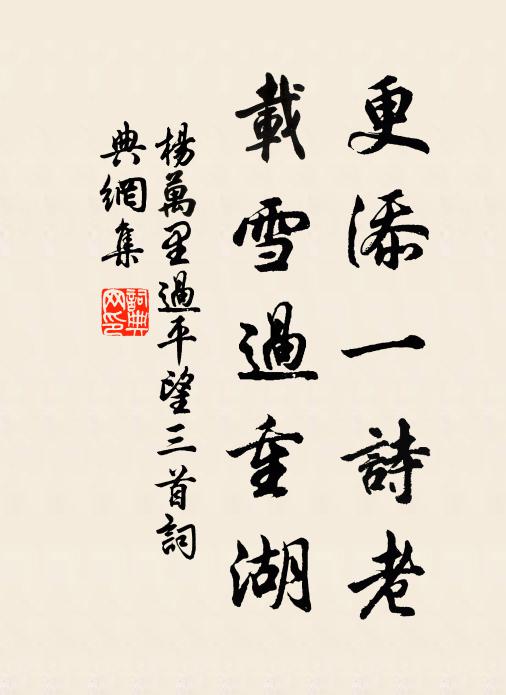 更添一詩老
載雪過重湖
楊萬里過平望三首詞
典網集
詞典網印